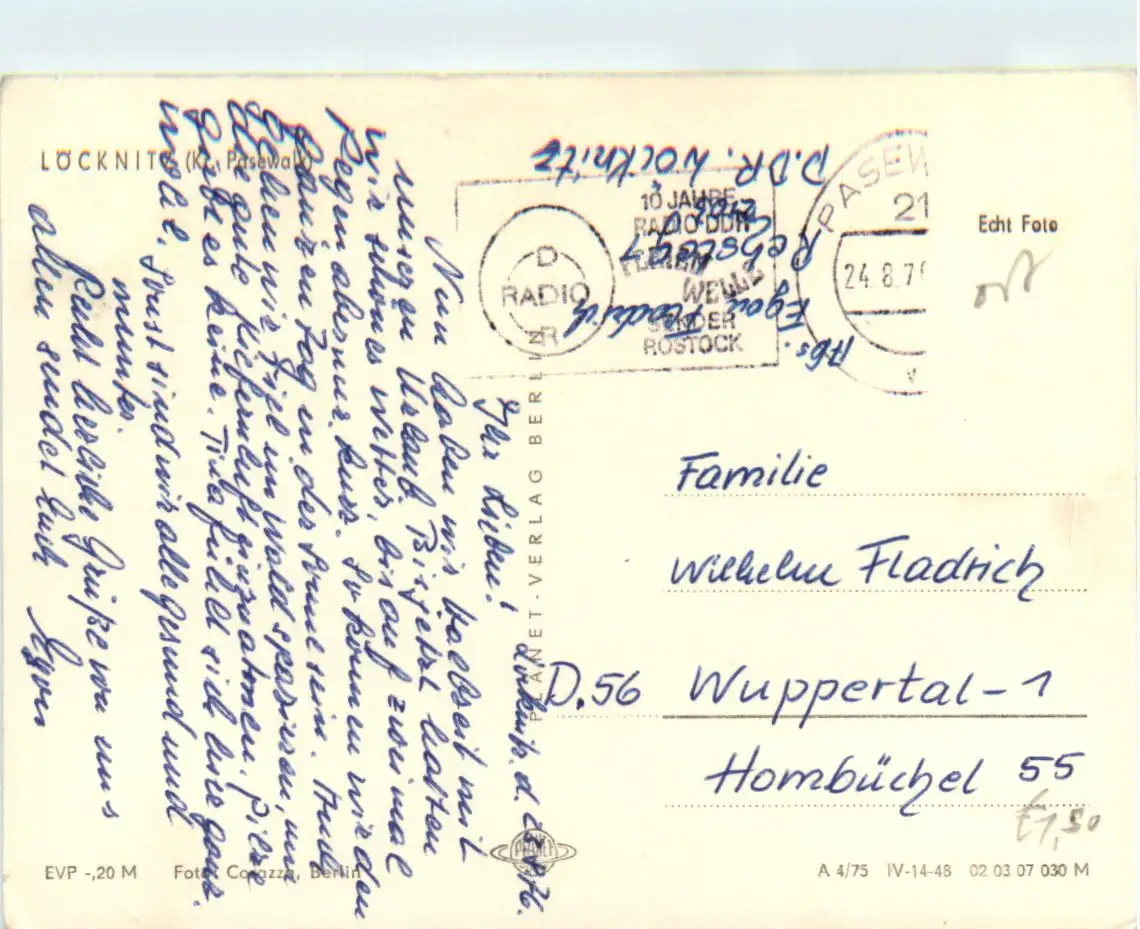 LÖCKNITZ (Kr. Pasewalk)
Löcknitz, d. 76.
Ihr Lieben!
Nun haben wir halbzeit mit
unseren Urlaub. Bis jetzt hatten
wir schönes wetter, bis auf zweimal
Regen aber nur kurz. So können wir den
ganzen Tag in der Sonne sein. Auch
gehen wir viel im Wald spazieren, um
die gute Kiefernluft einzuatmen. Pilze
gibt es keine. Tina fühlt sich hier ganz
wohl. Sonst sind wir alle gesund und
munter.
Recht herzliche Grüße von uns
allen sendet Euch Egon
EVP -,20 M Foto: Corazza, Berlin
PLANET-VERLAG BERLIN
PLANET
Abs. Egon Fladrich
Rebsteg 1
D.DR. Löcknitz
D
RADIO
R
10 JAHRE
RADIO DDR
FERIEN
WELLE
SENDER
ROSTOCK
PASEW
21
24.8.76
Echt Foto
ort
Familie
Wilhelm Fladrich
D.56 Wuppertal-1
Hombüchel 55
€1,50
A 4/75 IV-14-48 02 03 07 030 M